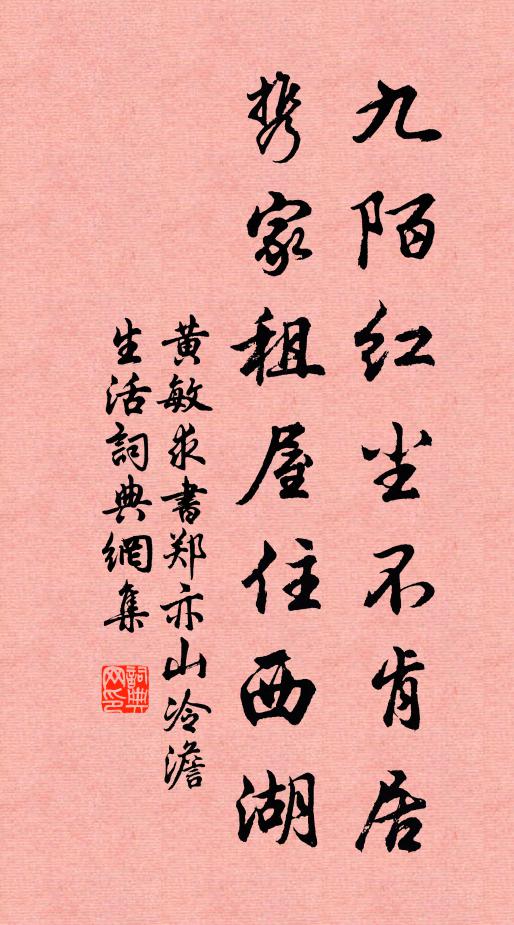 九陌红尘不肯居
携家租屋住西湖
黄敏求書郑亦山冷澹
生活詞典網集
詞典网印